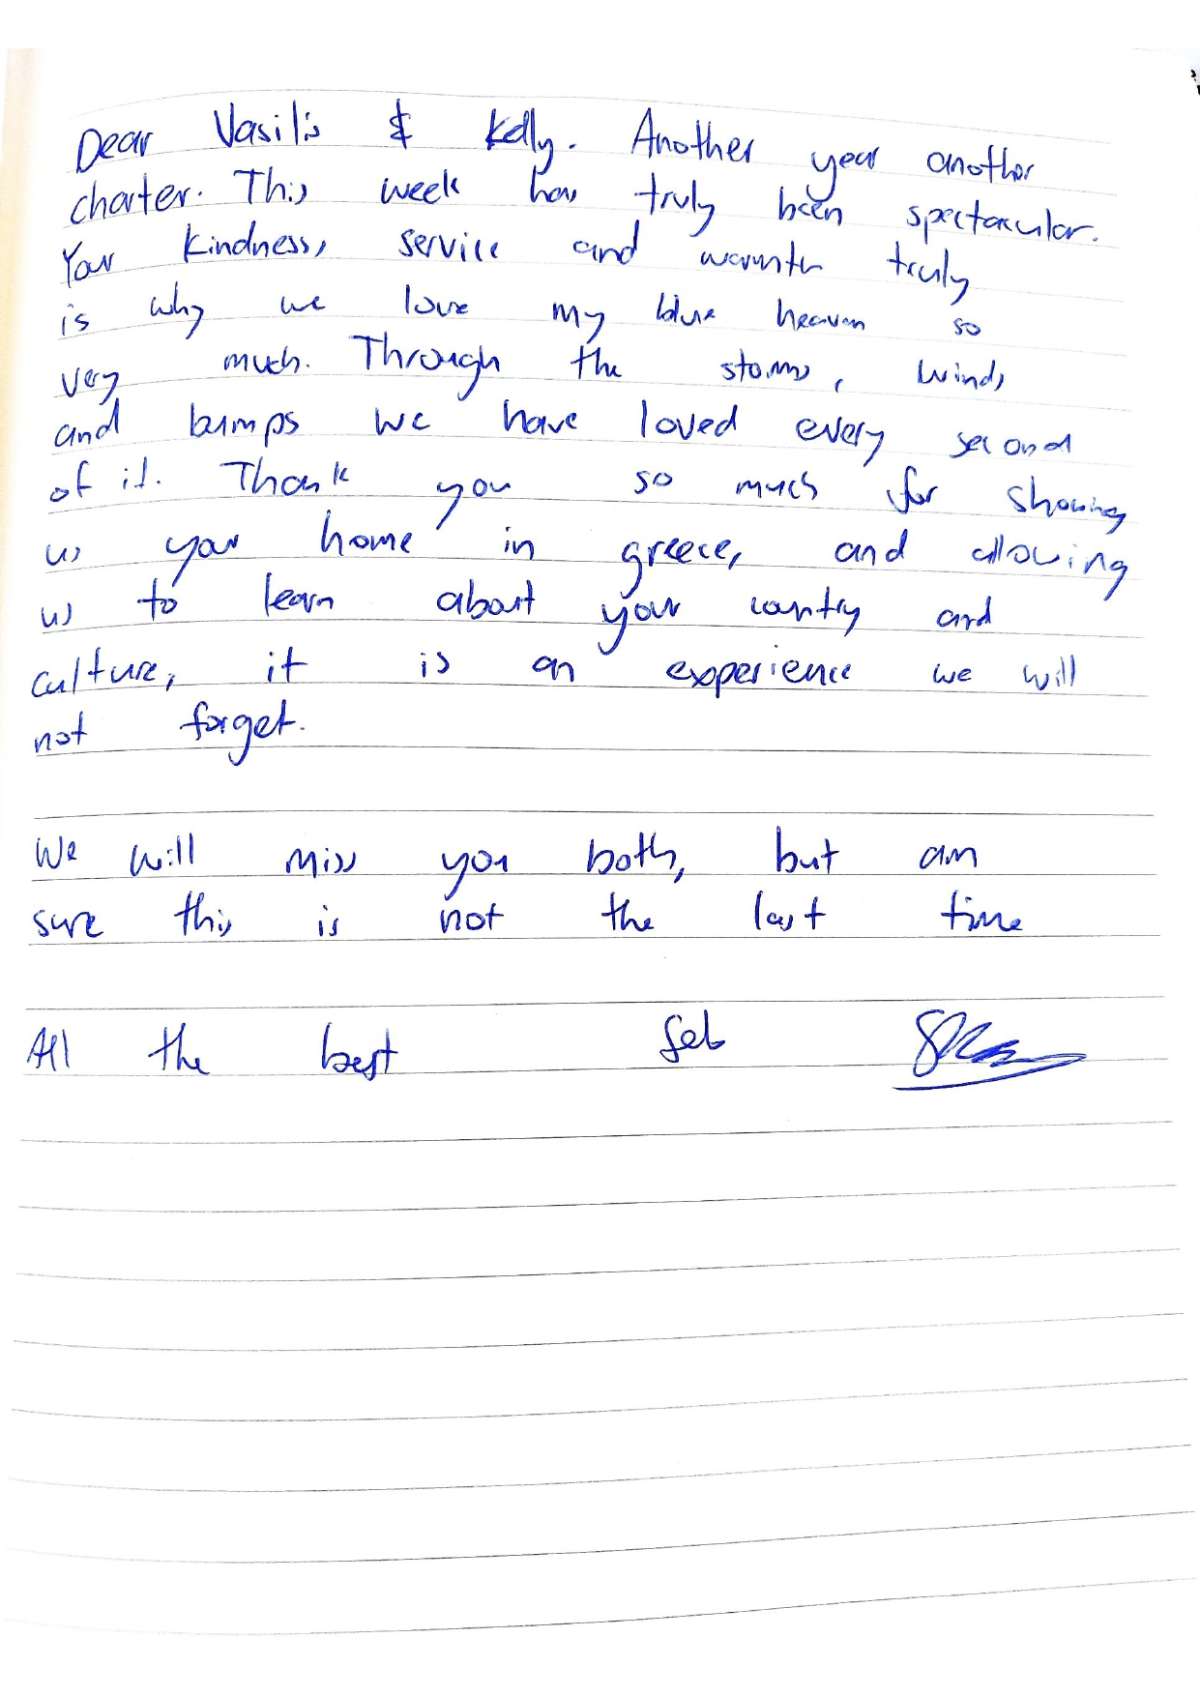 Dear Vasilis & Kelly. Another year another
charter. This week has truly been spectacular.
Your kindness, service and warmth truly
is why we love my blue heaven so
very much. Through the storms, winds
and bumps we have loved every second
of it. Thank you so much for showing
us your home in greece, and allowing
us to learn about your country and
culture, it is an experience we will
not forget.
We will miss you both, but am
sure this is not the last time
All the best Seb